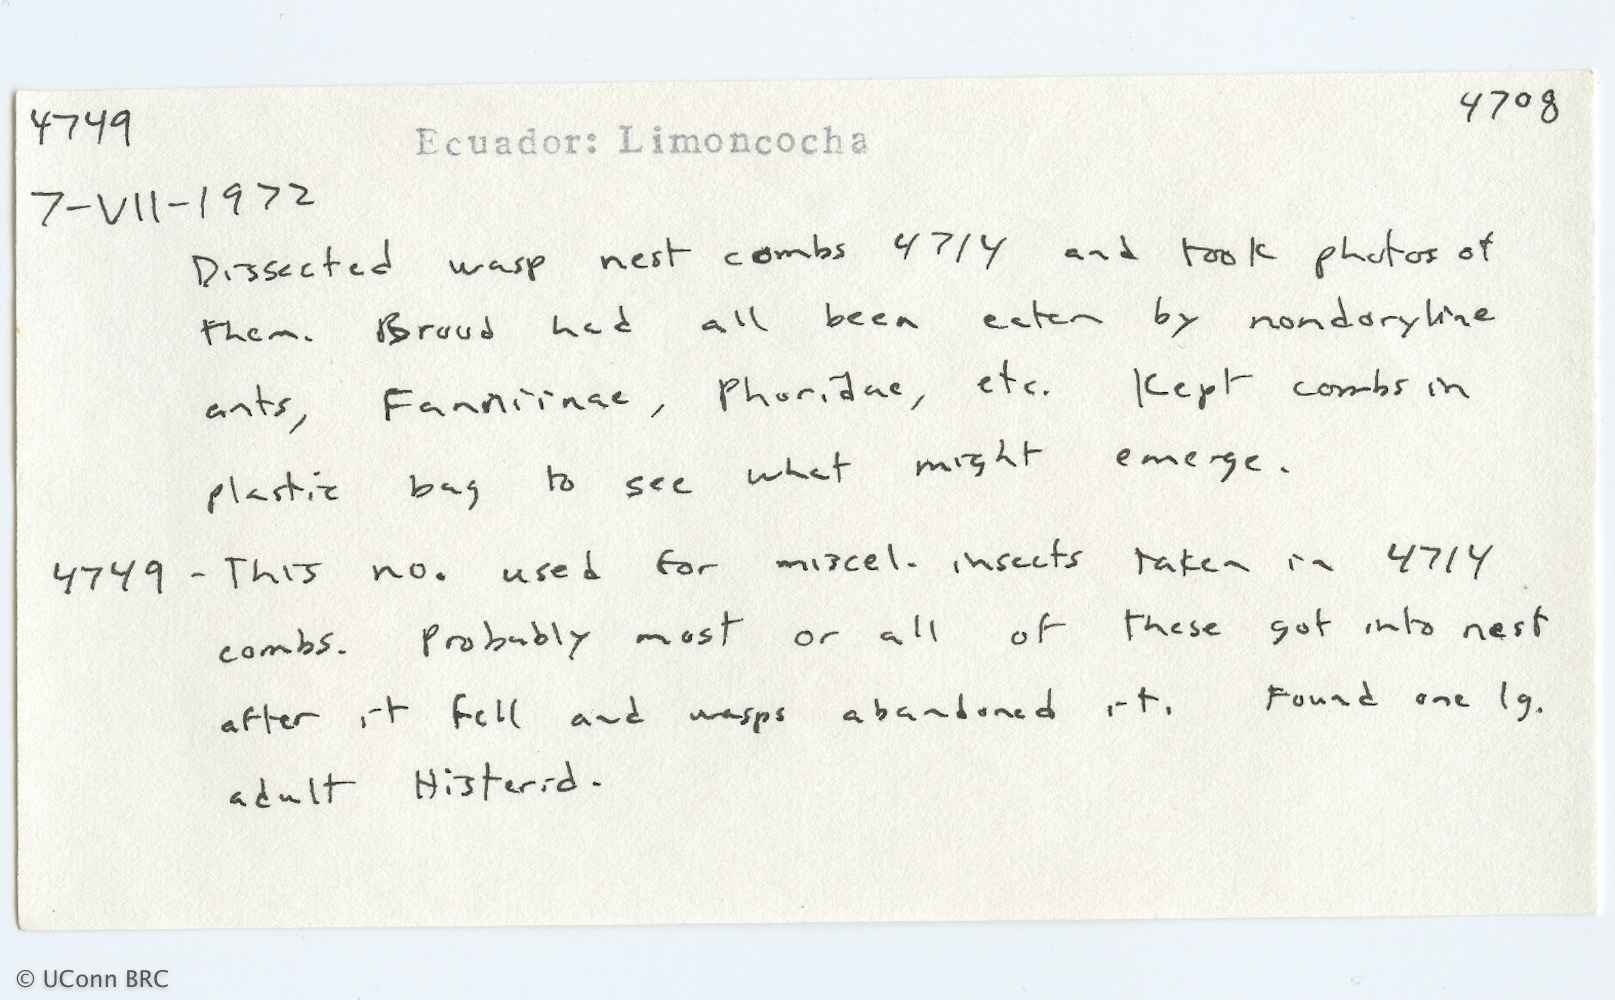 4749
4708
Ecuador: Limoncocha
7-VII-1972
Dissected wasp nest combs 4714 and took photos of
them. Brood had all been eaten by nondoryline
ants, Fanniinae, Phoridae, etc. Kept combs in
plastic bag to see what might emerge.
4749 - This no. used for miscel. insects taken in 4714
combs. Probably most or all of these got into nest
after it fell and wasps abandoned it. Found one lg.
adult Histerid.
© UConn BRC